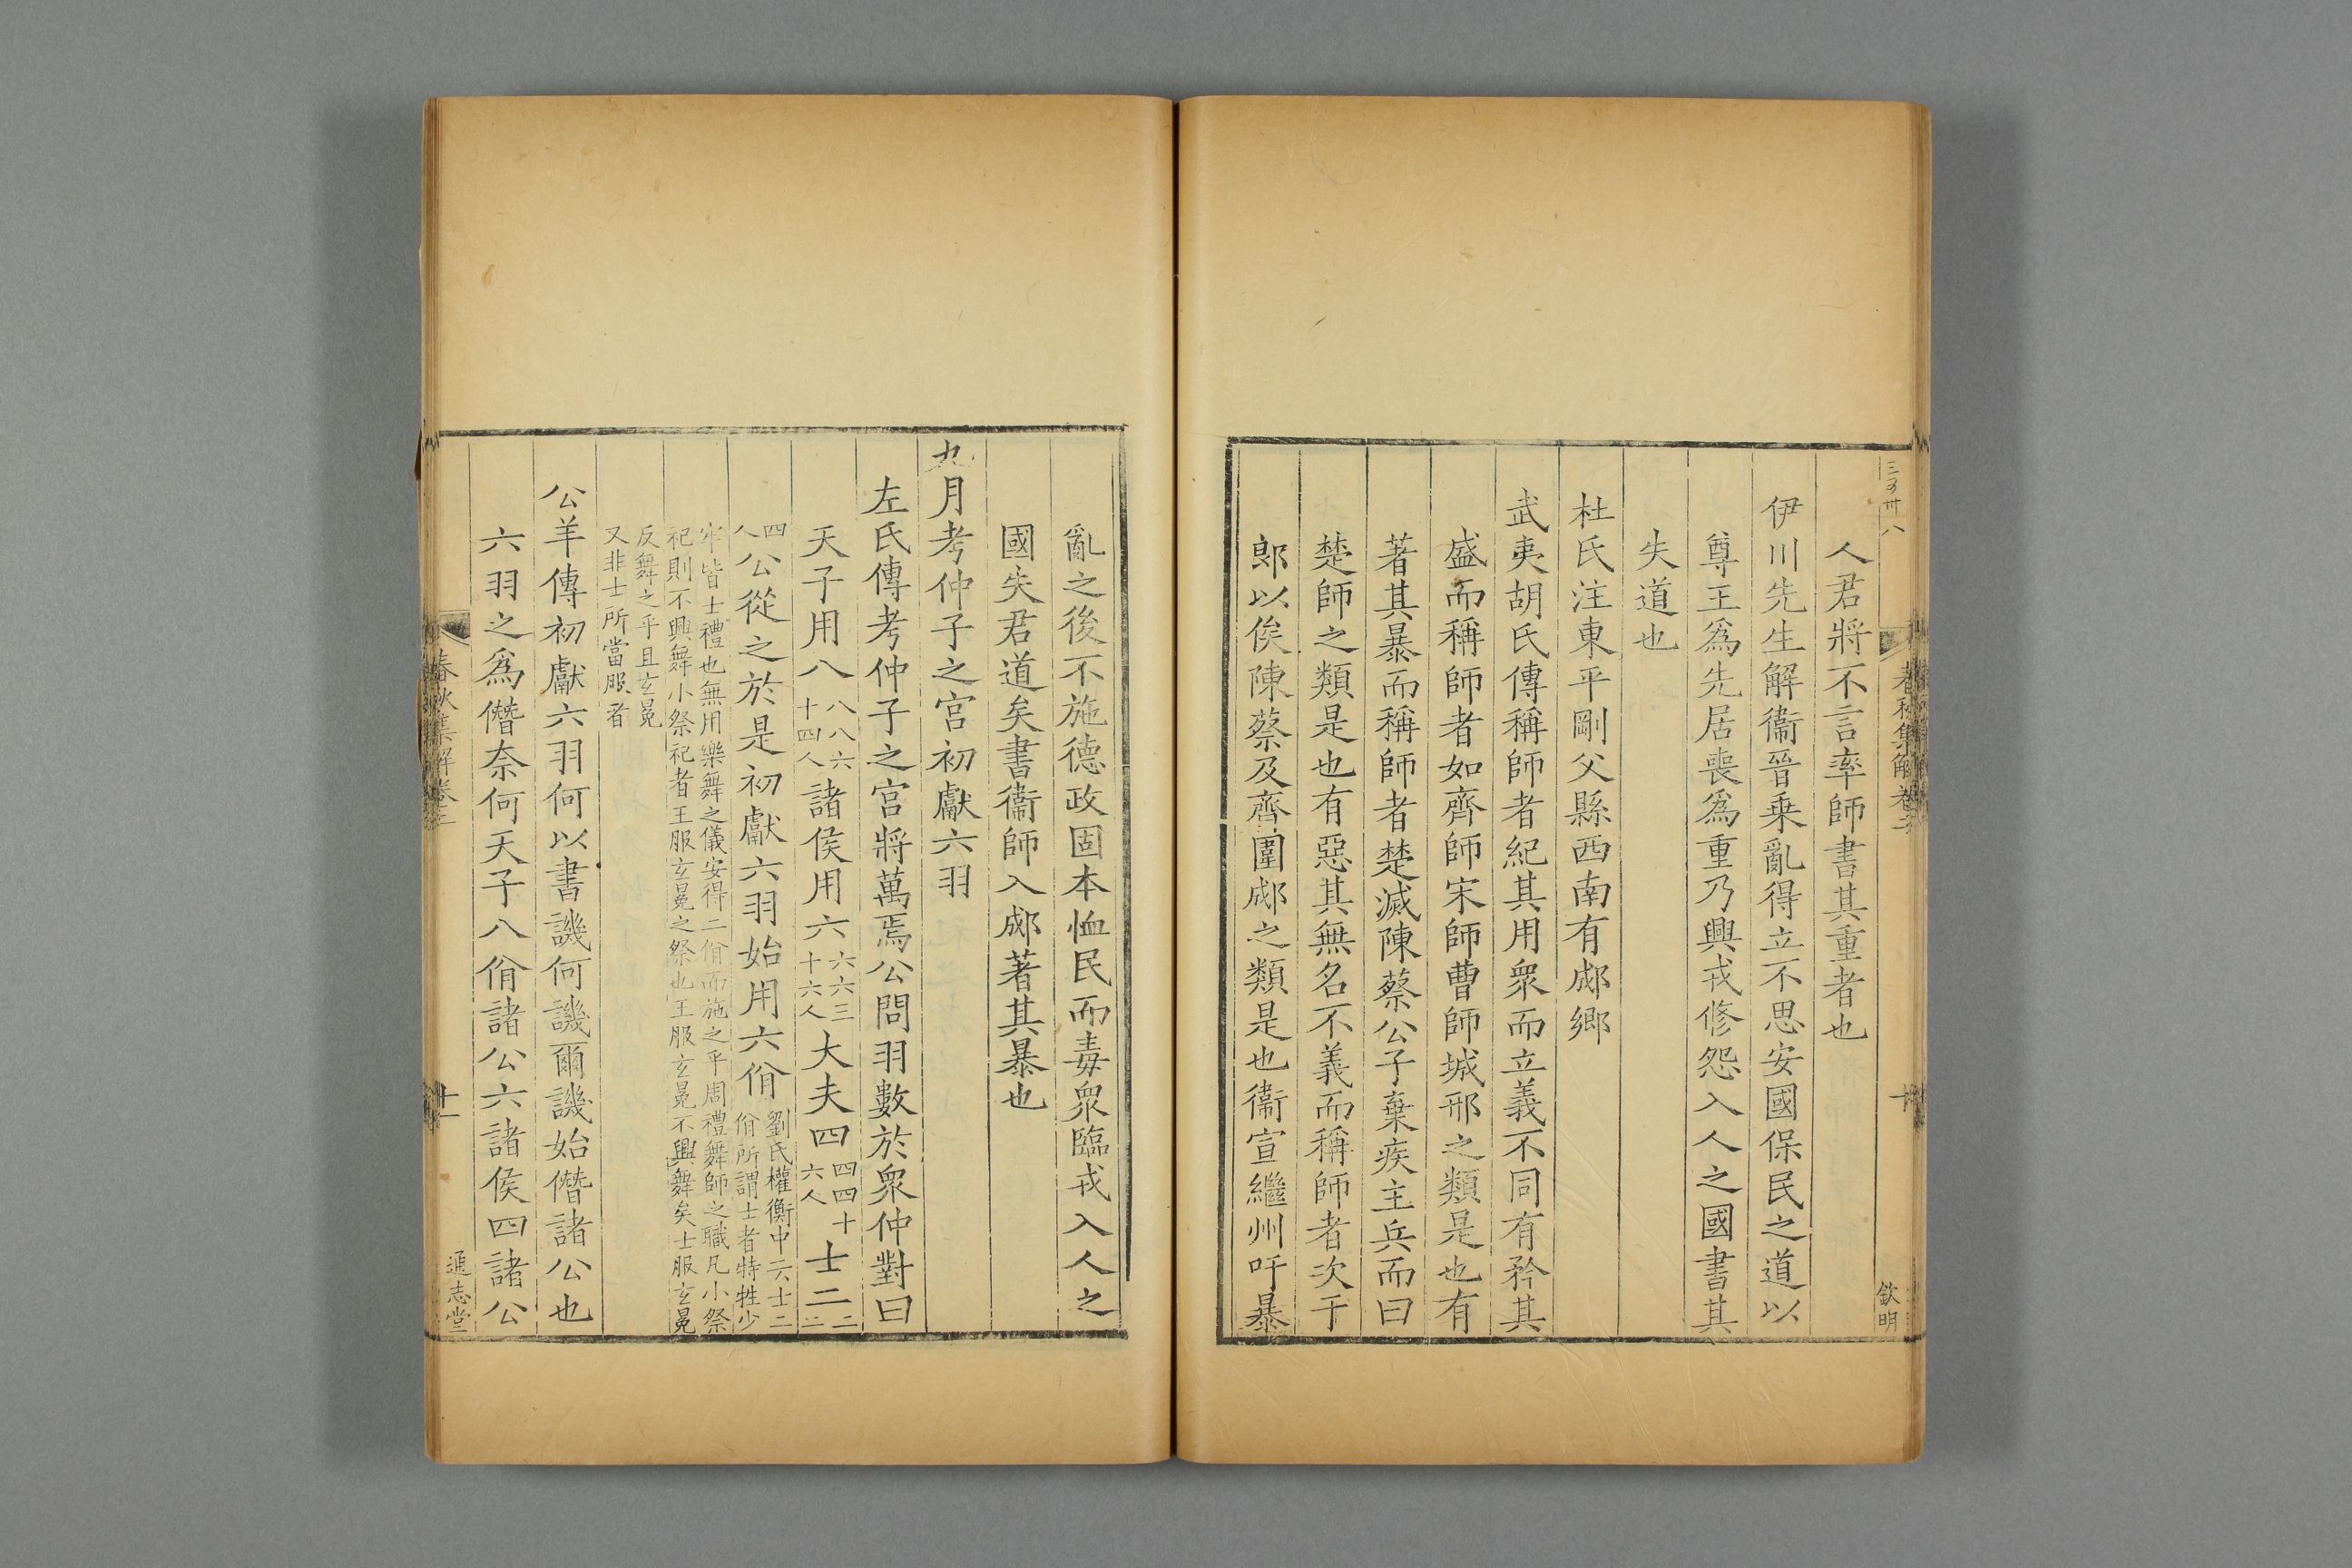 春秋集解卷二
十
欽明
人君將不言率師書其重者也
伊川先生解衞晉乗亂得立不思安國保民之道以
尊王爲先居喪爲重乃興戎修怨入人之國書其
失道也
杜氏注東平剛父縣西南有郕鄉
武夷胡氏傳稱師者紀其用衆而立義不同有矜其
盛而稱師者如齊師宋師曹師城邢之類是也有
著其暴而稱師者楚滅陳蔡公子棄疾主兵而曰
楚師之類是也有惡其無名不義而稱師者次于
郎以俟陳蔡及齊圍郕之類是也衞宣繼州吁暴
亂之後不施德政固本恤民而毒衆臨戎入人之
國失君道矣書衞師入郕著其暴也
九月考仲子之宮初獻六羽
左氏傳考仲子之宮將萬焉公問羽數於衆仲對曰
天子用八八八六十四人諸侯用六六六三十六人大夫四四四十六人士二二二
四人公從之於是初獻六羽始用六佾劉氏權衡中云士二佾所謂士者特牲少
牢皆士禮也無用樂舞之儀安得二佾而施之乎周禮舞師之職凡小祭
祀則不興舞小祭祀者王服玄冕之祭也王服玄冕不興舞矣士服玄冕
反舞之乎且玄冕
又非士所當服者
公羊傳初獻六羽何以書譏何譏爾譏始僭諸公也
六羽之爲僭奈何天子八佾諸公六諸侯四諸公
春秋集解卷二
十一
通志堂